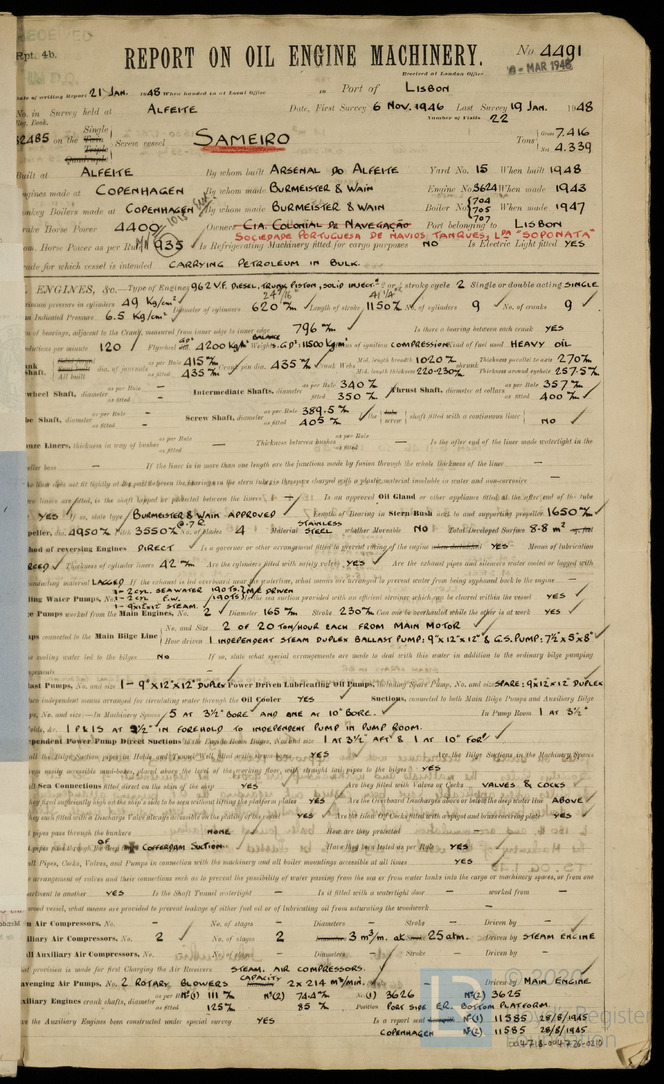 RECEIVED
Rpt. 4b.
REPORT ON OIL ENGINE MACHINERY.
No 4491
Received at London Office
8 - MAR 1948
Date of writing Report 21 JAN. 1948 When handed in at Local Office in Port of LISBON
No. in Survey held at ALFEITE Date, First Survey 6 NOV. 1946 Last Survey 19 JAN. 1948
Reg. Book. Number of Visits 22
32485 on the Single Twin Triple Quadruple Screw vessel SAMEIRO Tons Gross 7.416 Net 4.339
Built at ALFEITE By whom built ARSENAL DO ALFEITE Yard No. 15 When built 1948
Engines made at COPENHAGEN By whom made BURMEISTER & WAIN Engine No. 3624 When made 1943
Donkey Boilers made at COPENHAGEN By whom made BURMEISTER & WAIN Boiler No. 704 705 707 When made 1947
Brake Horse Power 4400 Owners CIA. COLONIAL DE NAVEGAÇÃO Port belonging to LISBON
SOCIEDADE PORTUGUESA DE NAVIOS TANQUES, LDA "SOPONATA"
Nom. Horse Power as per Rule 935 Is Refrigerating Machinery fitted for cargo purposes NO Is Electric Light fitted YES
Trade for which vessel is intended CARRYING PETROLEUM IN BULK.
ENGINES, &c.—Type of Engines 962 V.F. DIESEL, TRUNK PISTON, SOLID INJECT. 2 or 4 stroke cycle 2 Single or double acting SINGLE
pressure in cylinders 49 Kg/cm² Diameter of cylinders 620 m/m Length of stroke 1150 m/m No. of cylinders 9 No. of cranks 9
Mean Indicated Pressure 6.5 Kg/cm²
of bearings, adjacent to the Crank, measured from inner edge to inner edge 796 m/m Is there a bearing between each crank YES
Revolutions per minute 120 Flywheel GD² 4200 Kg m² BALANCE Weights GD² 11500 Kg m² Means of ignition COMPRESSION Kind of fuel used HEAVY OIL
Crank Shaft, dia. of journals as per Rule 415 m/m as fitted 435 m/m Crank pin dia. 435 m/m Crank Webs Mid. length breadth 1020 m/m Mid. length thickness 220-230 m/m shrunk Thickness parallel to axis 270 m/m Thickness around eyehole 257.5 m/m
Flywheel Shaft, diameter as per Rule – as fitted – Intermediate Shafts, diameter as per Rule 340 m/m as fitted 350 m/m Thrust Shaft, diameter at collars as per Rule 357 m/m as fitted 400 m/m
Tube Shaft, diameter as per Rule – as fitted – Screw Shaft, diameter as per Rule 389.5 m/m as fitted 405 m/m Is the tube screw shaft fitted with a continuous liner NO
Bronze Liners, thickness in way of bushes as per Rule as fitted – Thickness between bushes as per Rule as fitted – Is the after end of the liner made watertight in the
propeller boss – If the liner is in more than one length are the junctions made by fusion through the whole thickness of the liner –
If the liner does not fit tightly at the part between the bearings in the stern tube, is the space charged with a plastic material insoluble in water and non-corrosive –
If two liners are fitted, is the shaft lapped or protected between the liners – Is an approved Oil Gland or other appliance fitted at the after end of the tube
YES If so, state type BURMEISTER & WAIN APPROVED Length of Bearing in Stern Bush next to and supporting propeller 1650 m/m
Propeller, dia. 4950 m/m Pitch 3550 m/m @ .7 R No. of blades 4 Material STAINLESS STEEL whether Moveable NO Total Developed Surface 8.8 m²
Method of reversing Engines DIRECT Is a governor or other arrangement fitted to prevent racing of the engine YES Means of lubrication
FORCED Thickness of cylinder liners 42 m/m Are the cylinders fitted with safety valves YES Are the exhaust pipes and silencers water cooled or lagged with
non-conducting material LAGGED If the exhaust is led overboard near the waterline, what means are arranged to prevent water being syphoned back to the engine –
1 - 2 CYL. SEA WATER 190 TS. M/R DRIVEN
Cooling Water Pumps, No. 1 - 2 CYL. F.W. 190 TS. Is the sea suction provided with an efficient strainer which can be cleared within the vessel YES
1 - 9x12x12 STEAM.
Bilge Pumps worked from the Main Engines, No. 2 Diameter 165 m/m Stroke 230 m/m Can one be overhauled while the other is at work YES
Pumps connected to the Main Bilge Line No. and Size 2 OF 20 TON/HOUR EACH FROM MAIN MOTOR
How driven 1 INDEPENDENT STEAM DUPLEX BALLAST PUMP: 9"x12"x12" & G.S. PUMP: 7½"x5"x8"
Is the cooling water led to the bilges NO If so, state what special arrangements are made to deal with this water in addition to the ordinary bilge pumping
arrangements –
Ballast Pumps, No. and size 1 - 9"x12"x12" DUPLEX Power Driven Lubricating Oil Pumps, including Spare Pump, No. and size SPARE: 9x12x12" DUPLEX
Are two independent means arranged for circulating water through the Oil Cooler YES Suctions, connected to both Main Bilge Pumps and Auxiliary Bilge
Pumps, No. and size:—In Machinery Spaces 5 AT 3½" BORE AND ONE AT 10" BORE. In Pump Room 1 AT 3½"
In Holds, &c. 1 P & 1 S AT 2½" IN FOREHOLD TO INDEPENDENT PUMP IN PUMP ROOM.
Independent Power Pump Direct Suctions to the Engine Room Bilges, No. and size 1 AT 3½" AFT & 1 AT 10" FORD
Are all the Bilge Suction pipes in Holds and Tunnel Well fitted with strum-boxes YES Are the Bilge Suctions in the Machinery Spaces
led from easily accessible mud-boxes, placed above the level of the working floor, with straight tail pipes to the bilges YES
Are all Sea Connections fitted direct on the skin of the ship YES Are they fitted with Valves or Cocks VALVES & COCKS
Are they fixed sufficiently high on the ship's side to be seen without lifting the platform plates YES Are the Overboard Discharges above or below the deep water line ABOVE
Are they each fitted with a Discharge Valve always accessible on the plating of the vessel YES Are the Blow Off Cocks fitted with a spigot and brass covering plate YES
What pipes pass through the bunkers NONE How are they protected –
What pipes pass through COFFERDAM SUCTION Have they been tested as per Rule YES
Are all Pipes, Cocks, Valves, and Pumps in connection with the machinery and all boiler mountings accessible at all times YES
Is the arrangement of valves and their connections such as to prevent the possibility of water passing from the sea or from water tanks into the cargo or machinery spaces, or from one
compartment to another YES Is the Shaft Tunnel watertight – Is it fitted with a watertight door – worked from –
If a wood vessel, what means are provided to prevent leakage of either fuel oil or of lubricating oil from saturating the woodwork –
Main Air Compressors, No. – No. of stages – Diameters – Stroke – Driven by –
Auxiliary Air Compressors, No. 2 No. of stages 2 3 m³/m. at 25 atm. Driven by STEAM ENGINE
Small Auxiliary Air Compressors, No. – No. of stages – Diameters – Stroke – Driven by –
What provision is made for first Charging the Air Receivers STEAM AIR COMPRESSORS.
Scavenging Air Pumps, No. 2 ROTARY BLOWERS CAPACITY 2 x 214 m³/MIN. Driven by MAIN ENGINE
Auxiliary Engines crank shafts, diameter as per Rule Nº(1) 111 m/m Nº(2) 74.4 m/m as fitted 125 m/m 85 m/m No. (1) 3626 Nº(2) 3625
Position PORT SIDE E.R. BOTTOM PLATFORM
Have the Auxiliary Engines been constructed under special survey YES Is a report sent Nº(1) 11585 28/8/1945
COPENHAGEN Nº(2) 11585 28/8/1945
© 2020
Lloyd's Register
Foundation
004718-004726-0210